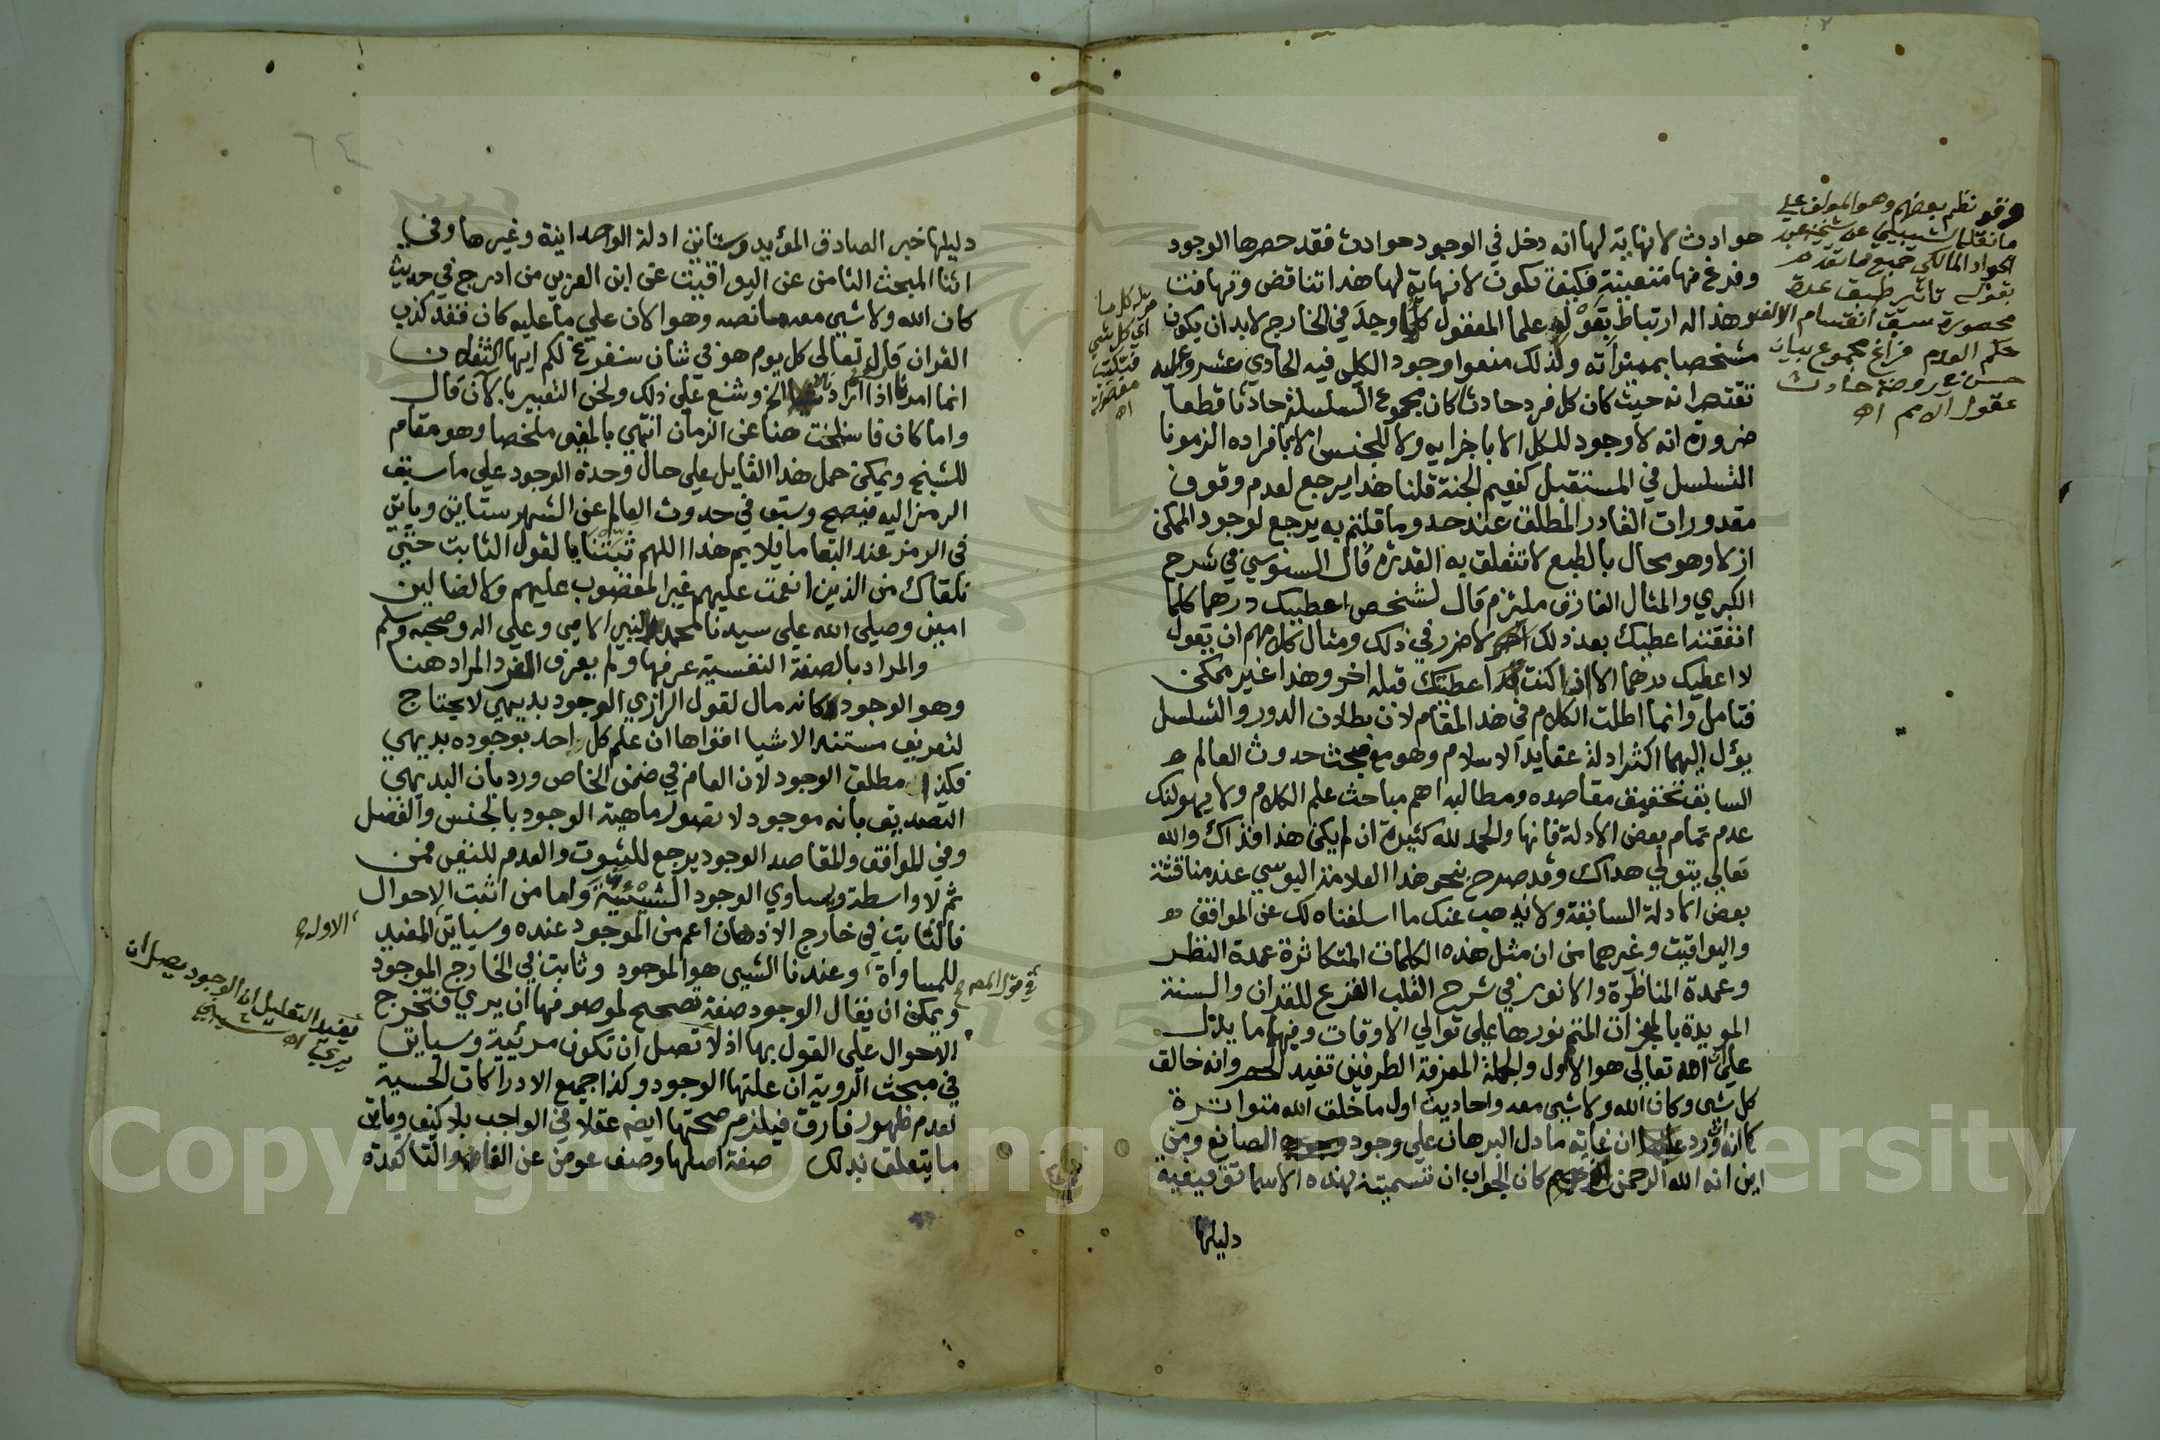 حوادث لا نهاية لها انه دخل في الوجود حوادث فقد حصرها الوجود
وفرغ منها متعينة فكيف تكون لا نهاية لها هذا تناقض وتهافت
وهذا له ارتباط بقوله علما المعقول كلما وجد في الخارج لا بد ان يكون
مشخصا بمميزاته ولذلك منعوا وجود الكلي فيه الحادي عشر وعليه
نقتصر انه حيث كان كل فرد حادثا كان مجموع السلسلة حادثا قطعا
ضرورة انه لا وجود للكل الا باجزايه ولا للجنس الا بافراده الزمونا
التسلسل في المستقبل كنعيم الجنة قلنا هذا يرجع لعدم وقوف
مقدورات القادر المطلق عند حد وما قلتم به يرجع لوجود الممكن
ازلا وهو محال بالطبع لا تتعلق به القدرة قال السنوسي في شرح
الكبري والمثال الفارق ملتزم قال لشخص اعطيك درهما كلما
انفقته اعطيك بعد ذلك اخر لا ضرر في ذلك ومثال كلامهم ان يقول
لا اعطيك درهما الا اذا كنت قد اعطيتك قبله اخر وهذا غير ممكن
فتامل وانما اطلت الكلام في هذا المقام لان بطلان الدور والتسلسل
يؤل اليهما اكثر ادلة عقايد الاسلام وهو مع مبحث حدوث العالم ه
السابق تحقيق مقاصده ومطالبه اهم مباحث علم الكلام ولا يهولنك
عدم تمام بعض الادلة فانها والحمد لله كثيرة ان لم يكن هذا فذاك والله
تعالى يتولي هداك وقد صرح بنحو هذا العلامة اليوسي عند مناقشة
بعض الادلة السابقة ولا يذهب عنك ما اسلفناه لك عن المواقف ه
واليواقيت وغيرهما من ان مثل هذه الكلمات المتكاثرة عمدة النظر
وعمدة المناظرة والانور في شرح القلب الفزع للقران والسنة
المويدة بالمعجزات المتم نورها على توالي الاوقات وفيها ما يدل
على ان الله تعالى هو الاول والجملة المعرفة الطرفين تفيد الحصر وانه خالق
كل شي وكان الله ولا شي معه واحاديث اول ما خلق الله متواترة
كانه ورد ان غاية ما دل البرهان علي وجود الصانع ومن
اين انه الله الرحمن الرحيم كان الجواب ان تسميته بهذه الاسما توقيفية
دليلها
وقد نظم بعضهم وهو المولف علي
ما نقلنا عن شيخه عبد
الجواد المالكي جميع ما تقدم ه
بقوله تاثير طبق عدة
محصورة سبق انقسام الالف
علم العدم فراغ مجموع بيان
حسن في روضة حادث
عقول الامم اه
كل ما
اي كل شي
فتكتب
مفصولة
اه
دليلها خبر الصادق المؤيد وستاتي ادلة الواحدانية وغيرها وفي
اثنا المبحث الثامن عن اليواقيت عن ابن العربي من ادرج في حديث
كان الله ولا شي معه ما نصه وهو الان علي ما عليه كان فقد كذب
القران قال تعالى كل يوم هو في شان سنفرغ لكم ايها الثقلان
انما امرنا اذا اراد الخ وشنع على ذلك ولحن التعبير بالآن قال
واما كان فانسلخت هنا عن الزمان انتهي بالمعنى ملخصا وهو مقام
للشيخ ويمكن حمل هذا القايل علي حال وحدة الوجود علي ما سبق
الرمز اليه فيصح وسبق في حدوث العالم عن الشهرستاني وياتي
في الرمز عند البقا ما يلايم هذا اللهم ثبتنا بالقول الثابت حتي
نلقاك من الذين انعمت عليهم غير المغضوب عليهم ولا الضالين
امين وصلى الله على سيدنا محمد النبي الامي وعلي اله وصحبه وسلم
والمراد بالصفة النفسية عرفها ولم يعرف الفرد المراد هنا
وهو الوجود كانه مال لقول الرازي الوجود بديهي لا يحتاج
لتعريف مستند الاشيا اقواها ان علم كل احد بوجوده بديهي
فكذا مطلق الوجود لان العام في ضمن الخاص ورد بان البديهي
التصديق بانه موجود لا تصور ماهية الوجود بالجنس والفصل
وفي المواقف والمقاصد الوجود يرجع للثبوت والعدم للنفي فمن
ثم لا واسطة ويساوي الوجود الشيئية واما من اثبت الاحوال
فالثابت في خارج الاذهان اعم من الموجود عنده وسياتي المفيد
للمساواة وعندنا الشي هو الموجود وثابت في الخارج الموجود
ويمكن ان يقال الوجود صفة تصحح لموصوفها ان يري فتخرج
الاحوال على القول بها اذ لا تصل ان تكون مرئية وسياتي
في مبحث الروية ان علتها الوجود وكذا جميع الادراكات الحسية
لعدم ظهور فارق فيلزم صحتها ايضا عقلا في الواجب بلا كيف وياتي
ما يتعلق بذلك صفة اصلها وصف عوض عن الفا والتا كعدة
الاوله
في قول المص
يفيد التعليل ان الوجود يصل ان
يري اه
Copyright © King Saud University
1957
٦٤